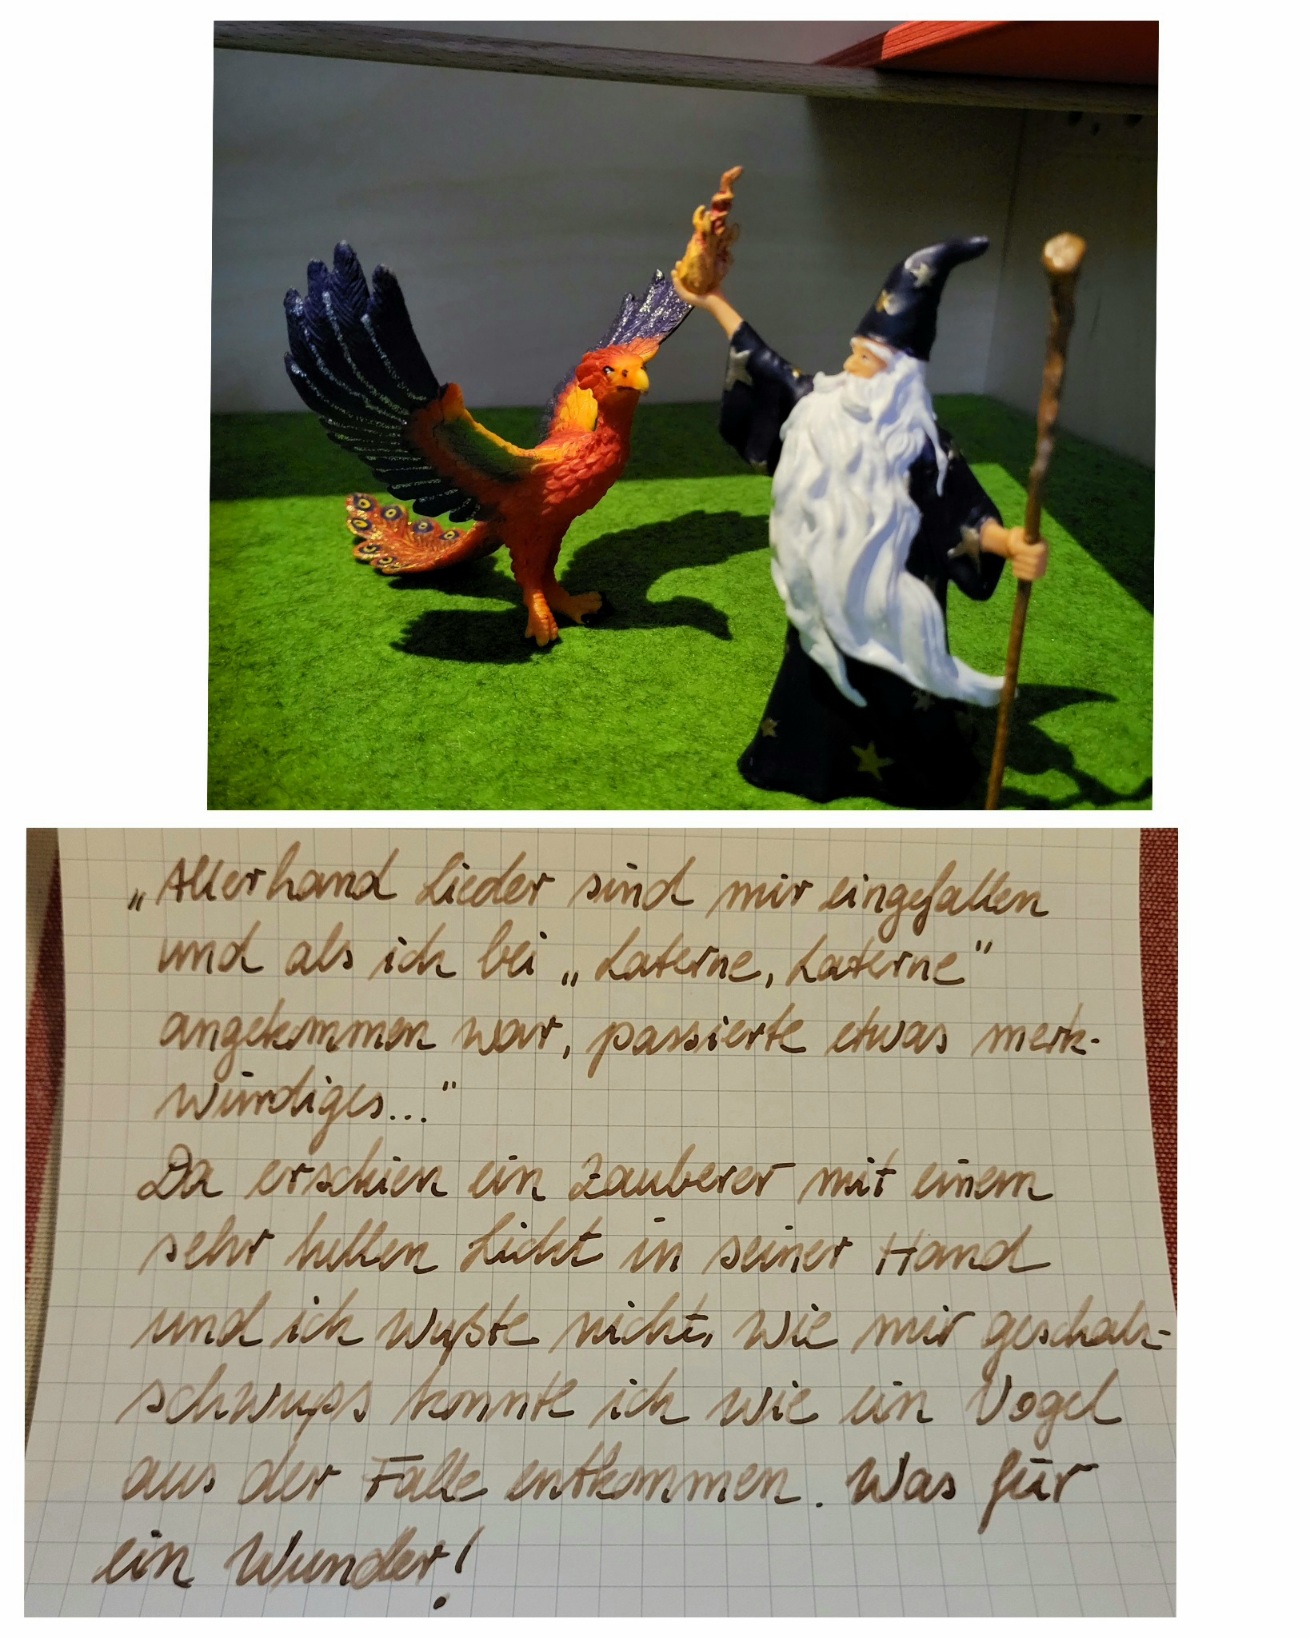 „Allerhand Lieder sind mir eingefallen
und als ich bei „Laterne, Laterne"
angekommen war, passierte etwas merk-
würdiges..."
Da erschien ein Zauberer mit einem
sehr hellen Licht in seiner Hand
und ich wußte nicht, wie mir geschah-
schwups konnte ich wie ein Vogel
aus der Falle entkommen. Was für
ein Wunder!